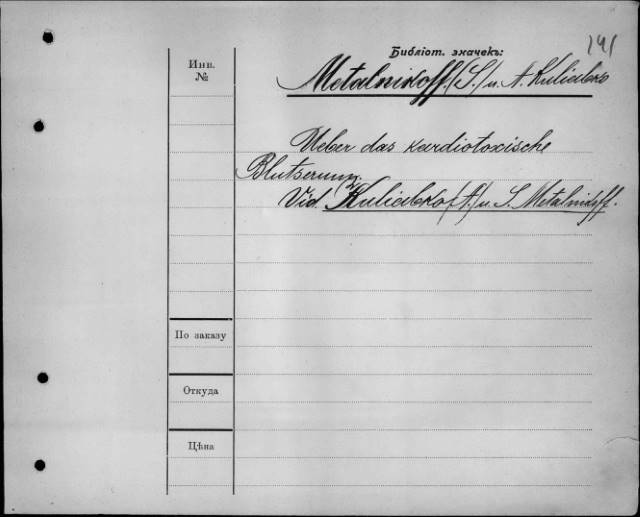 141
Библіот. значекъ:
Инв.
№
Metalnikoff (S.) u. A. Kuliabko
Ueber das kardiotoxische
Blutserum.
Vid. Kuliabko (A.) u. S. Metalnikoff.
По заказу
Откуда
Цѣна